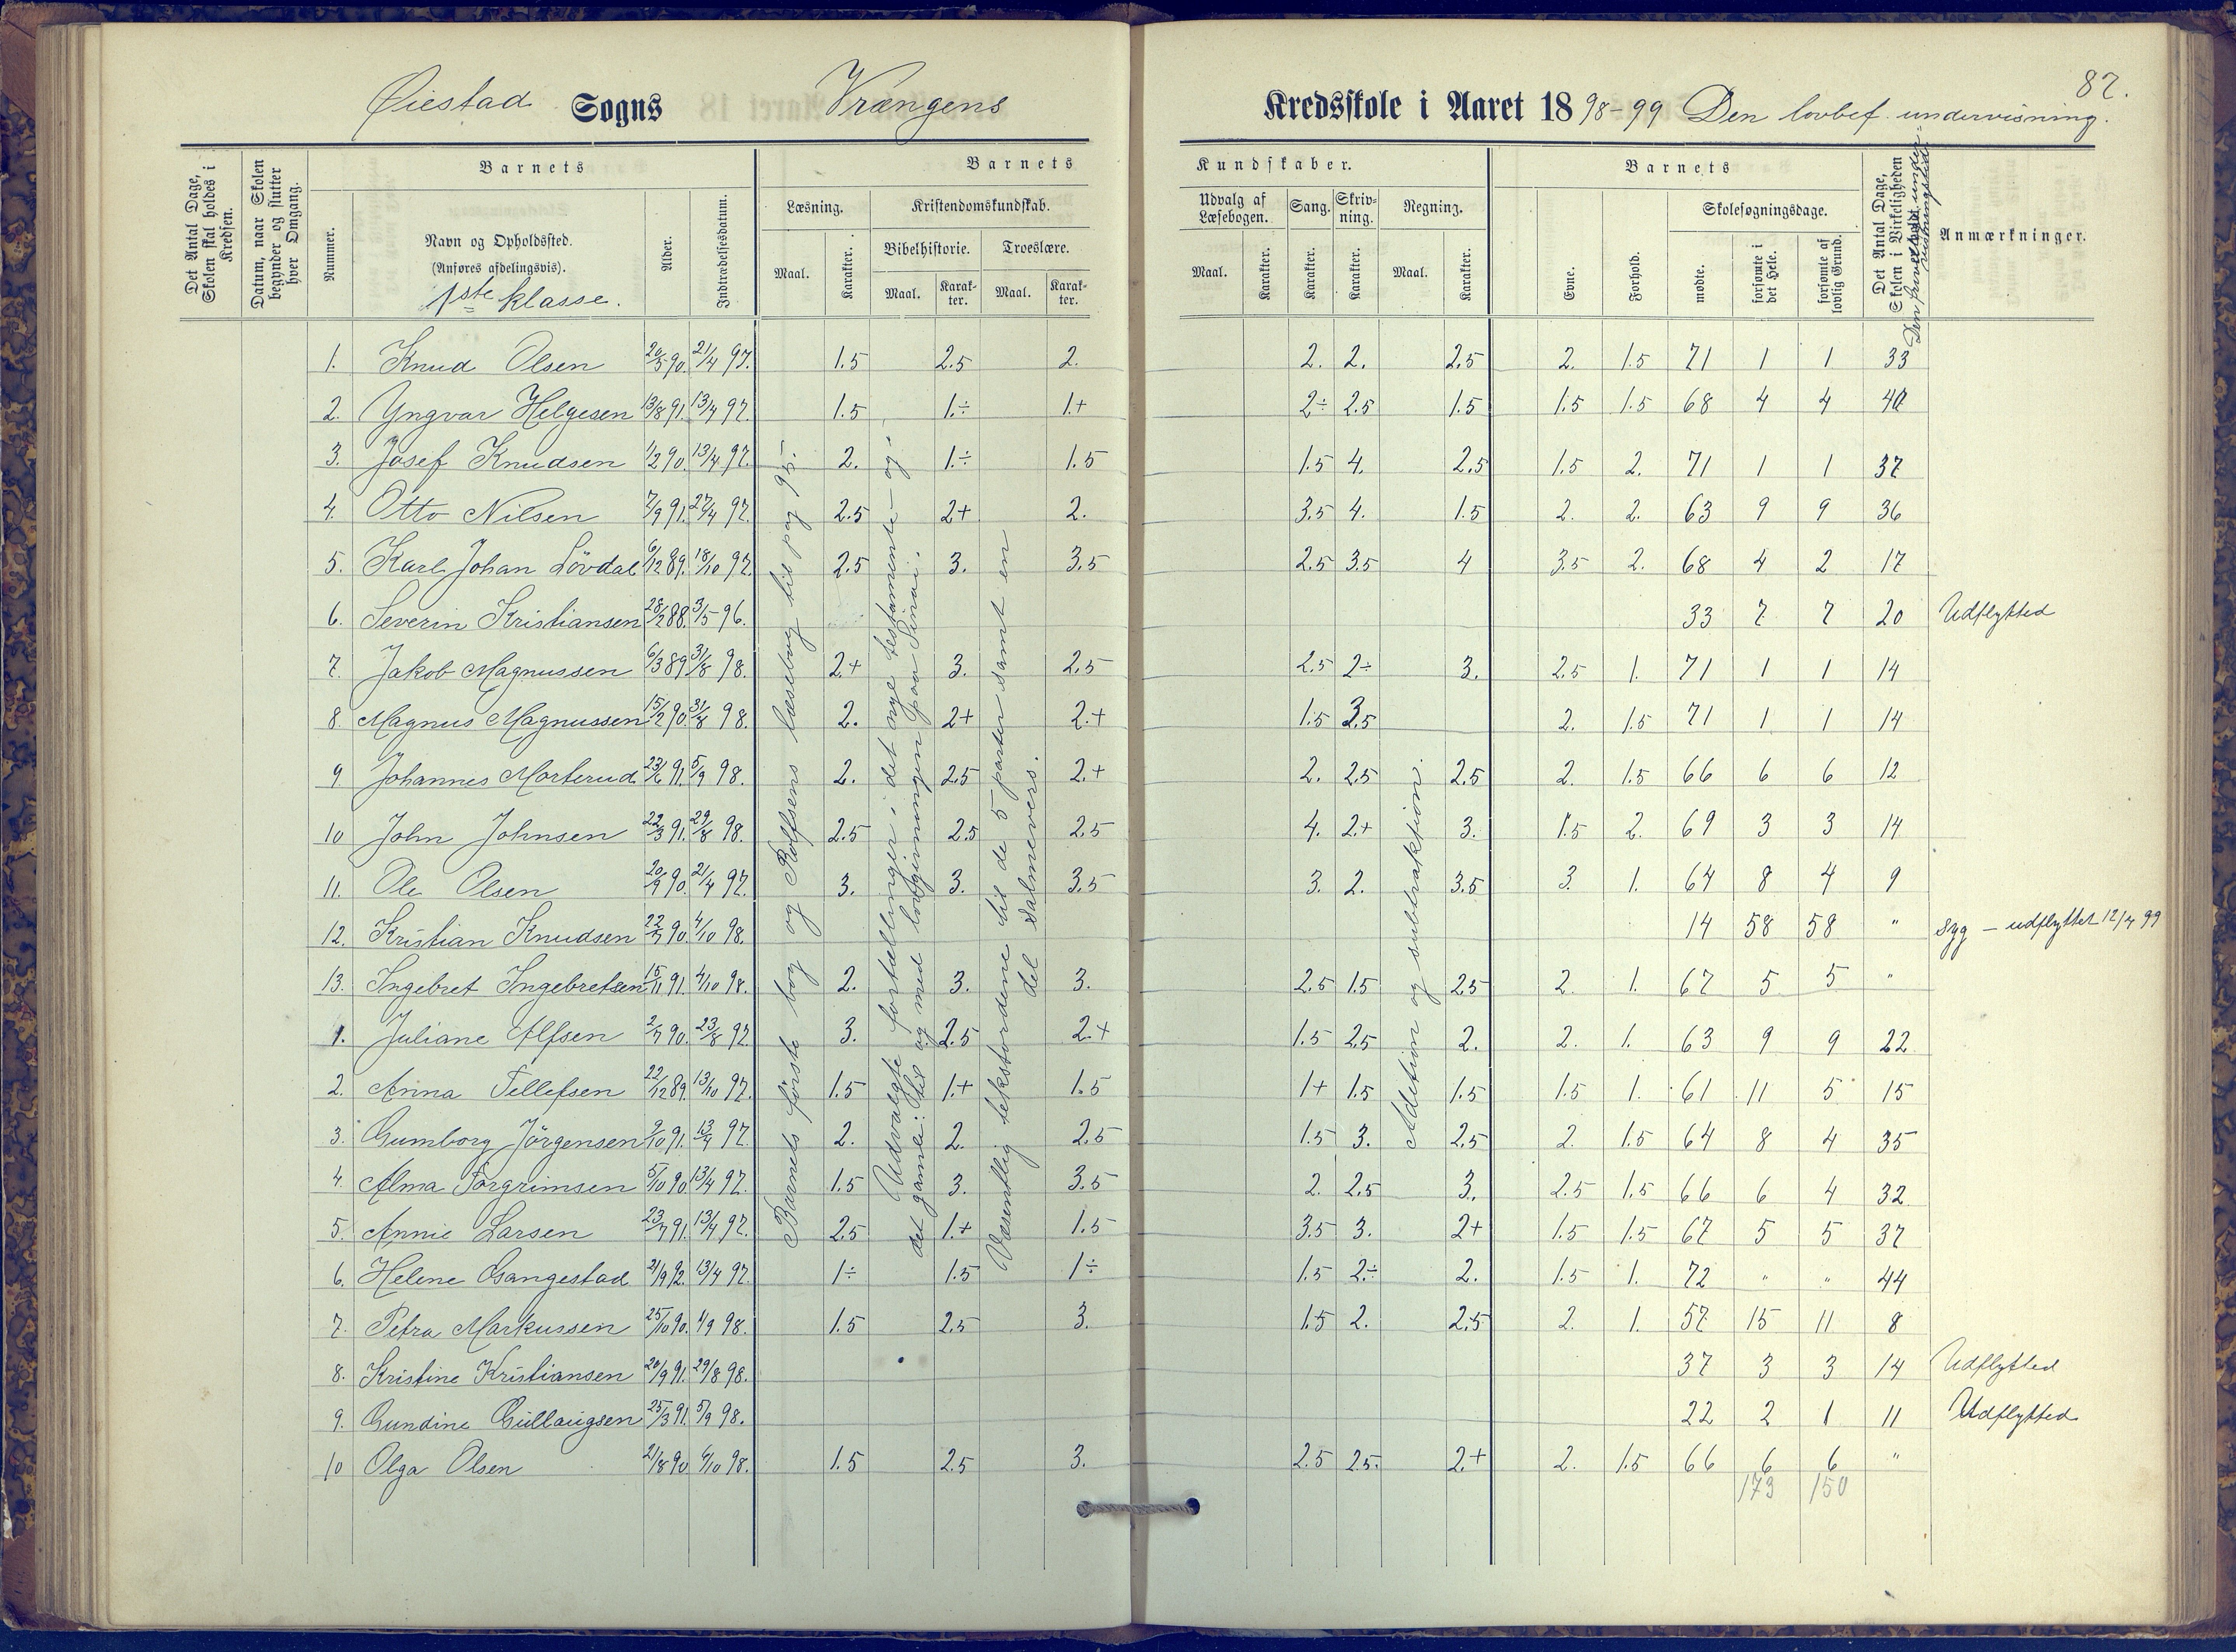 87.
Øiestad Sogns Vrængens Kredsskole i Aaret 1898-99 Den lovbef. undervisning.
Det Antal Dage, Skolen skal holdes i Kredsen.
Datum, naar Skolen begynder og slutter hver Omgang.
Barnets
Nummer.
Navn og Opholdssted.
(Anføres afdelingsvis).
1ste klasse.
Alder.
Indtrædelsesdatum.
Barnets Kundskaber.
Læsning.
Maal.
Karakter.
Kristendomskundskab.
Bibelhistorie.
Maal.
Karakter.
Troeslære.
Maal.
Karakter.
Udvalg af Læsebogen.
Maal.
Karakter.
Sang.
Karakter.
Skrivning.
Karakter.
Regning.
Maal.
Karakter.
Barnets
Evne.
Forhold.
Skolesøgningsdage.
mødte.
forsømte i det Hele.
forsømte af lovlig Grund.
Det Antal Dage, Skolen i Virkeligheden er holdt
Den frivillige undervisningstid.
Anmærkninger.
1. Knud Olsen 20/5 90. 21/4 97. 1.5 2.5 2. 2. 2. 2.5 2. 1.5 71 1 1 33
2. Yngvar Helgesen 13/8 91. 13/4 97. 1.5 1.÷ 1.+ 2÷ 2.5 1.5 1.5 1.5 68 4 4 40
3. Josef Knudsen 1/2 90. 13/4 97. 2. 1.÷ 1.5 1.5 4. 2.5 1.5 2. 71 1 1 37
4. Otto Nilsen 7/9 91. 27/4 97. 2.5 2+ 2. 3.5 4. 1.5 2. 2. 63 9 9 36
5. Karl Johan Lövdal 6/12 89. 18/10 97. 2.5 3. 3.5 2.5 3.5 4 3.5 2. 68 4 2 17
6. Severin Kristiansen 28/12 88. 3/5 96. 33 7 7 20 Udflytted
7. Jakob Magnussen 6/3 89 31/8 98. 2+ 3. 2.5 2.5 2÷ 3. 2.5 1. 71 1 1 14
8. Magnus Magnussen 15/2 90. 31/8 98. 2. 2+ 2.+ 1.5 3.5 2. 1.5 71 1 1 14
9. Johannes Morterud 23/6 91. 5/9 98. 2. 2.5 2.+ 2. 2.5 2.5 2. 1.5 66 6 6 12
10 John Johnsen 22/3 91. 29/8 98. 2.5 2.5 2.5 4. 2+ 3. 1.5 2. 69 3 3 14
11. Ole Olsen 20/9 90. 21/4 97. 3. 3. 3.5 3. 2. 3.5 3. 1. 64 8 4 9
12. Kristian Knudsen 22/7 90. 4/10 98. 14 58 58 " syg – udflyttet 12/4 99
13. Ingebret Ingebretsen 15/11 91. 4/10 98. 2. 3. 3. 2.5 1.5 2.5 2. 1. 67 5 5 "
1. Juliane Alfsen 2/7 90. 23/8 97. 3. 2.5 2.+ 1.5 2.5 2. 2. 1. 63 9 9 22
2. Anna Tellefsen 22/12 89. 13/10 97. 1.5 1.+ 1.5 1+ 1.5 1.5 1.5 1. 61 11 5 15
3. Gumborg Jörgensen 9/10 91. 13/4 97. 2. 2. 2.5 1.5 3. 2.5 2. 1.5 64 8 4 35
4. Alma Torgrimsen 5/10 90 13/4 97. 1.5 3. 3.5 2. 2.5 3. 2.5 1.5 66 6 4 32
5. Annie Larsen 23/7 91. 13/4 97. 2.5 1.+ 1.5 3.5 3. 2+ 1.5 1.5 67 5 5 37
6. Helene Gangestad 21/9 92. 13/4 97. 1÷ 1.5 1÷ 1.5 2.÷ 2. 1.5 1. 72 " " 44
7. Petra Markussen 25/10 90. 1/9 98. 1.5 2.5 3. 1.5 2. 2.5 2. 1. 57 15 11 8
8. Kristine Kristiansen 20/9 91. 29/8 98. 37 3 3 14 Udflytted
9. Gundine Gullaugsen 25/3 91. 5/9 98. 22 2 1 11 Udflytted
10 Olga Olsen 21/8 90 4/10 98. 1.5 2.5 3. 2.5 2.5. 2.+ 2. 1.5 66 6 6 "
173 150
Barnets første bog og Rolfsens læsebog til pag 95.
Udvalgte fortællinger i det nye testamente – og i
det gamle: til og med lovgivningen paa Sinai.
Væsentlig tekstordene til de 5 parter samt en
del salmevers.
Addition og subtraktion.